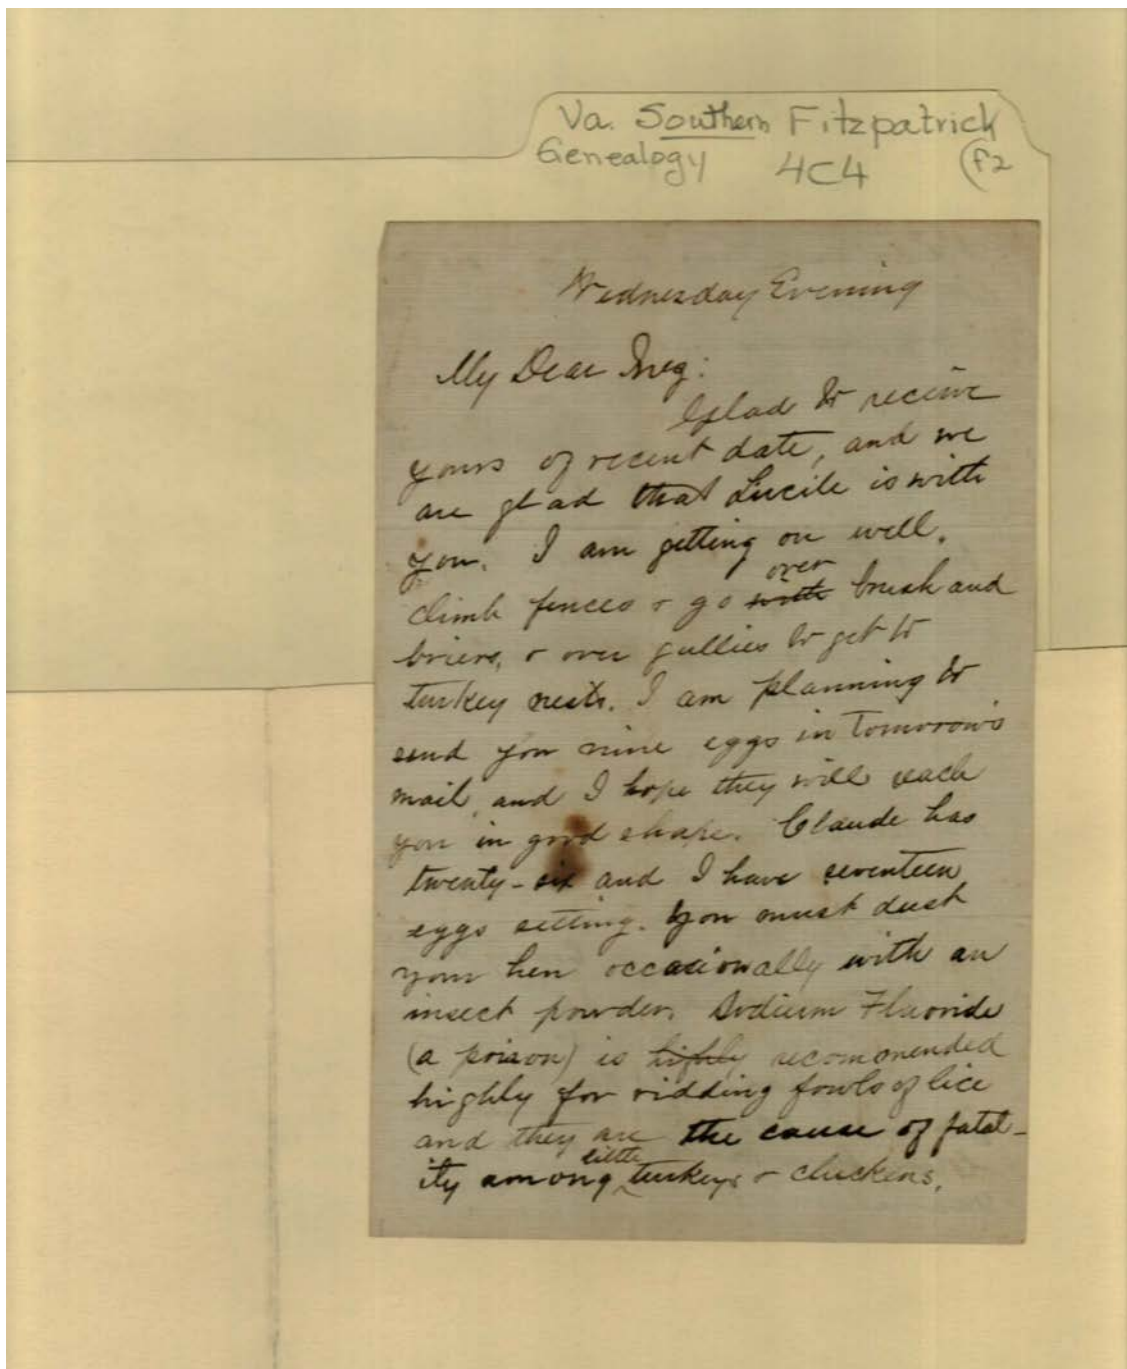 Va. Southern Fitzpatrick
Genealogy 4C4 (F2
Wednesday Evening
My Dear Meg:
Glad to receive
yours of recent date, and we
are glad that Lucile is with
you. I am getting on well,
climb fences & go ~~with~~ over brush and
briers, & over gullies to get to
turkey nests. I am planning to
send you nine eggs in tomorrow's
mail, and I hope they will reach
you in good shape. Claude has
twenty-six and I have seventeen
eggs setting. You must dust
your hen occasionally with an
insect powder. Sodium Fluoride
(a poison) is ~~highly~~ recommended
highly for ridding fowls of lice
and they are the cause of fatal-
ity among little turkeys & chickens.